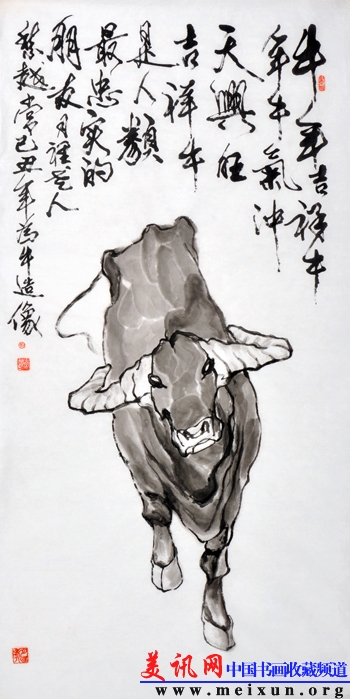 牛年吉祥牛
年牛氣沖
天興旺
吉祥牛
是人類
最忠实的
朋友月人
越常己丑年為牛造像
美讯网 中国书画收藏频道
www.meixun.org